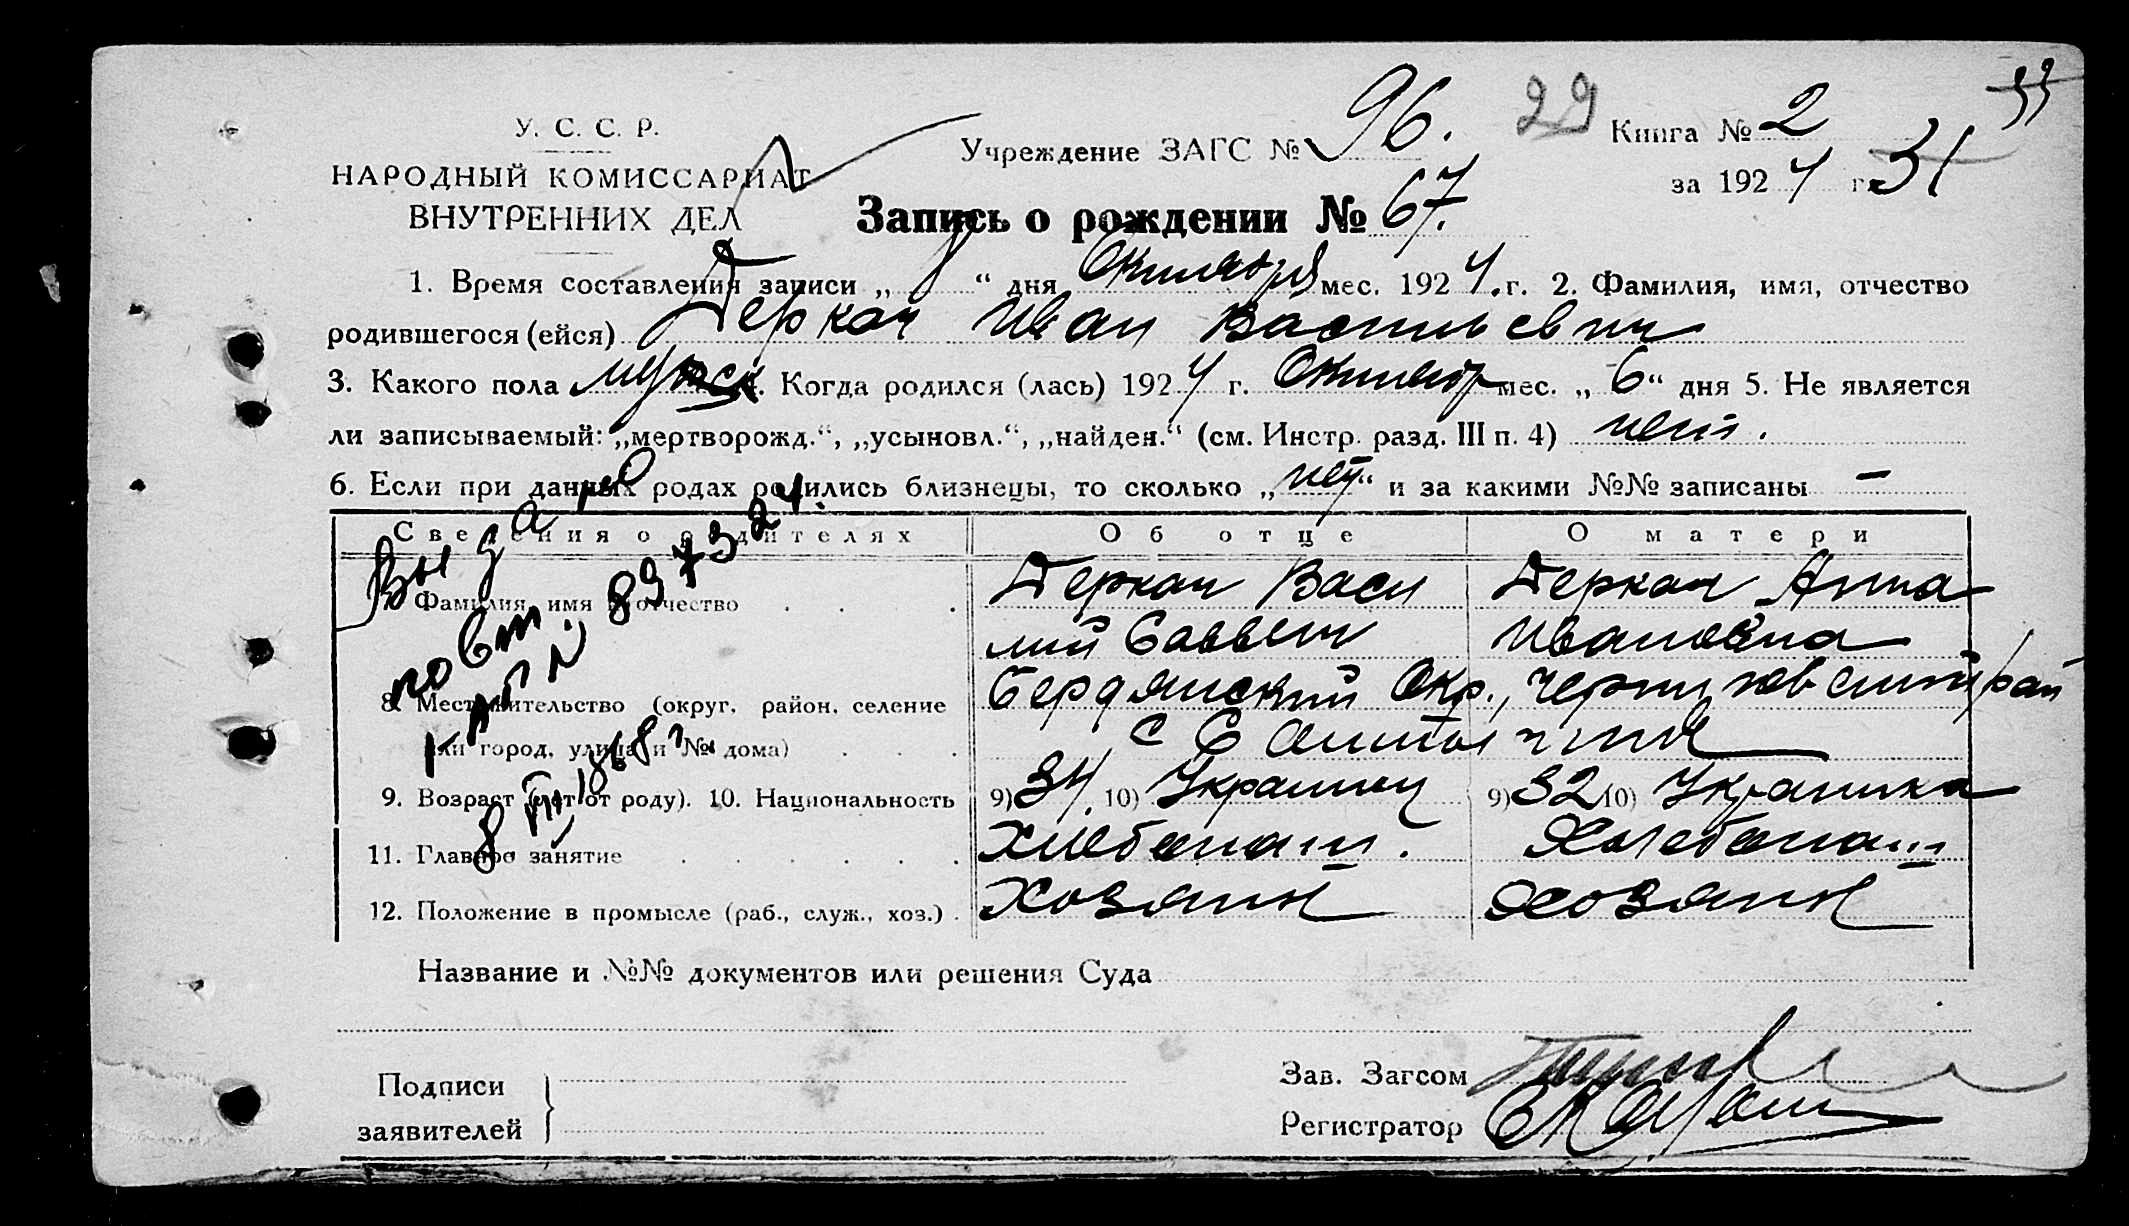 33
У. С. С. Р.
НАРОДНЫЙ КОМИССАРИАТ
ВНУТРЕННИХ ДЕЛ
Учреждение ЗАГС № 96.
29
Книга № 2
за 1924 г. 31
Запись о рождении № 67.
1. Время составления записи „ 8 “ дня Октября мес. 1924. г. 2. Фамилия, имя, отчество
родившегося (ейся) Деркач Иван Васильевич
3. Какого пола мужск. Когда родился (лась) 1924 г. Октябр мес. „ 6 “ дня 5. Не является
ли записываемый: „мертворожд.“, „усыновл.“, „найден.“ (см. Инстр. разд. III п. 4) нет.
6. Если при данных родах родились близнецы, то сколько „ нет “ и за какими №№ записаны —
Сведения о родителях Об отце О матери
Выдано
повт. 897324.
Фамилия, имя и отчество Деркач Васи Деркач Анна
лий Саввич Ивановна
8. Местожительство (округ, район, селение Бердянский Окр., Черниговский рай
или город, улица и № дома) с
9. Возраст (лет от роду). 10. Национальность 9) 34. 10) Украинец 9) 32 10) Украинка
8 III 1968 г
11. Главное занятие Хлебопаш. Хлебопаш
12. Положение в промысле (раб., служ., хоз.) Хозяин Хозяин
Название и №№ документов или решения Суда
Подписи
заявителей
Зав. Загсом
Регистратор